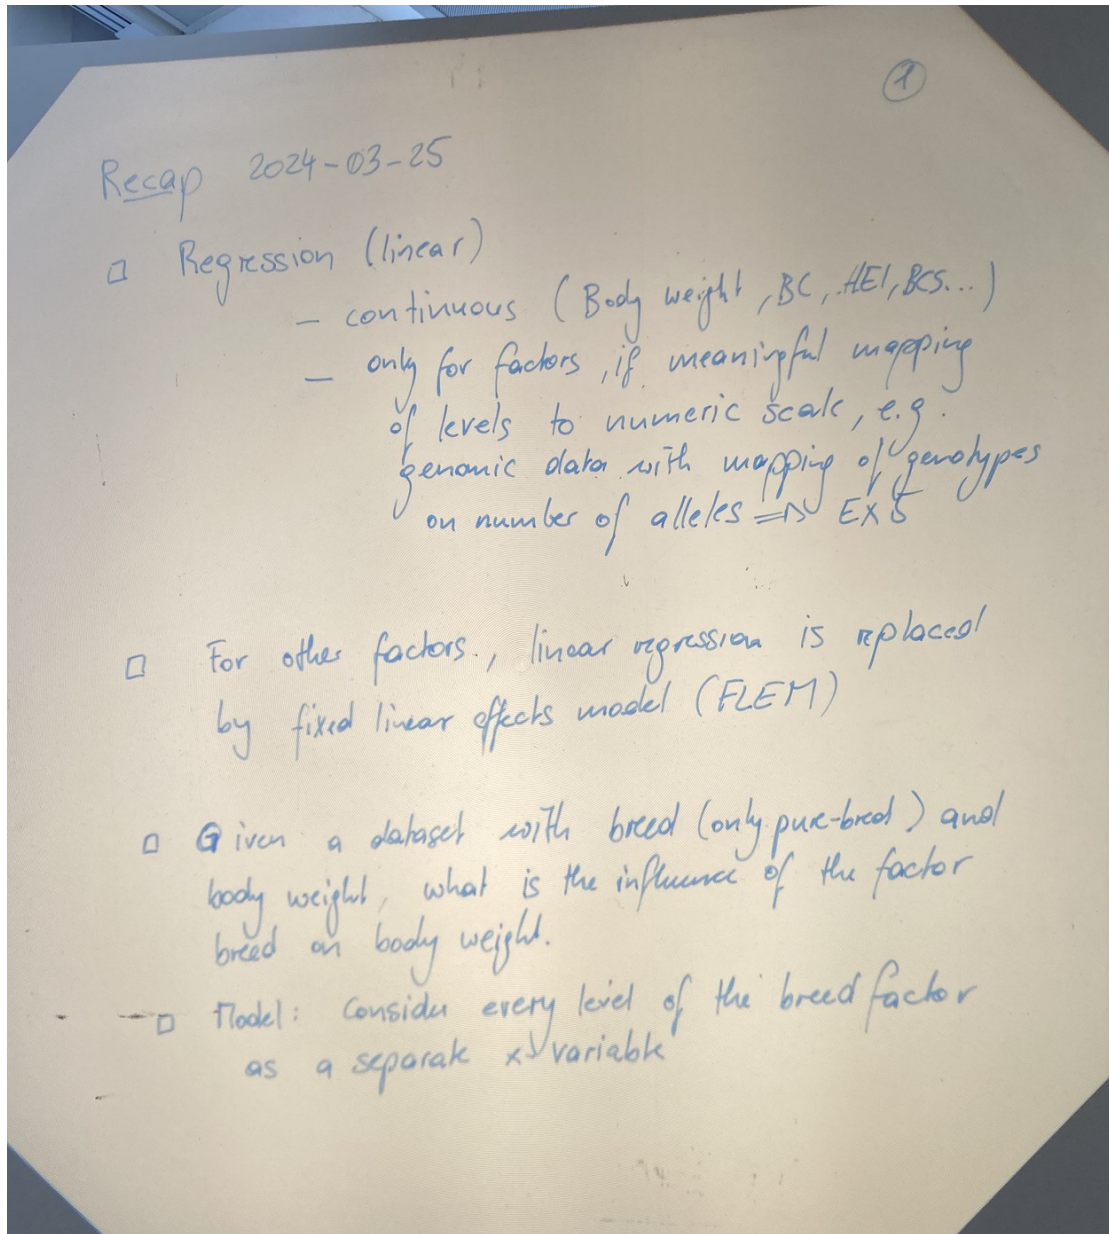 1
Recap 2024-03-25
□ Regression (linear)
— continuous (Body weight, BC, HEI, BCS...)
— only for factors, if meaningful mapping
of levels to numeric scale, e.g.
genomic data with mapping of genotypes
on number of alleles => EX 5
□ For other factors, linear regression is replaced
by fixed linear effects model (FLEM)
□ Given a dataset with breed (only pure-bred) and
body weight, what is the influence of the factor
breed on body weight.
□ Model: Consider every level of the breed factor
as a separate x variable